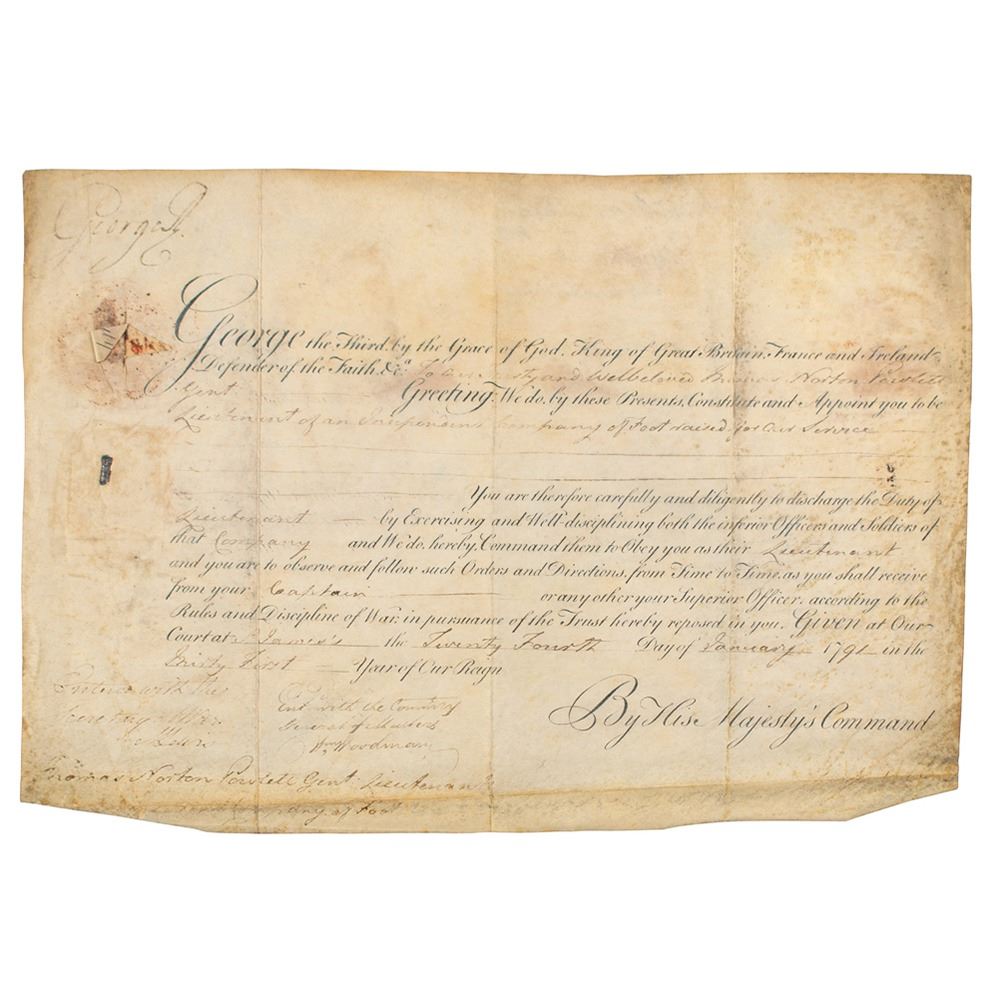 George R.
George the Third, by the Grace of God, King of Great Britain, France and Ireland,
Defender of the Faith, &c.a To Our Trusty and Welbeloved Thomas Norton Powlett
Gent Greeting: We do, by these Presents, Constitute and Appoint you to be
Lieutenant of an Independent Company of Foot raised for Our Service
You are therefore carefully and diligently to discharge the Duty of
Lieutenant by Exercising and Well-disciplining both the inferior Officers and Soldiers of
that Company and We do, hereby, Command them to Obey you as their Lieutenant
and you are to observe and follow such Orders and Directions, from Time to Time, as you shall receive
from your Captain or any other your Superior Officer, according to the
Rules and Discipline of War, in pursuance of the Trust hereby reposed in you. Given at Our
Court at St. James's the Twenty Fourth Day of January 1791 in the
Thirty First Year of Our Reign
By His Majesty's Command
Entered with the
Secretary at War
Ent. with the Commissry
General of Musters
Wm. Woodman
Thomas Norton Powlett Gent Lieutenant
Company of Foot